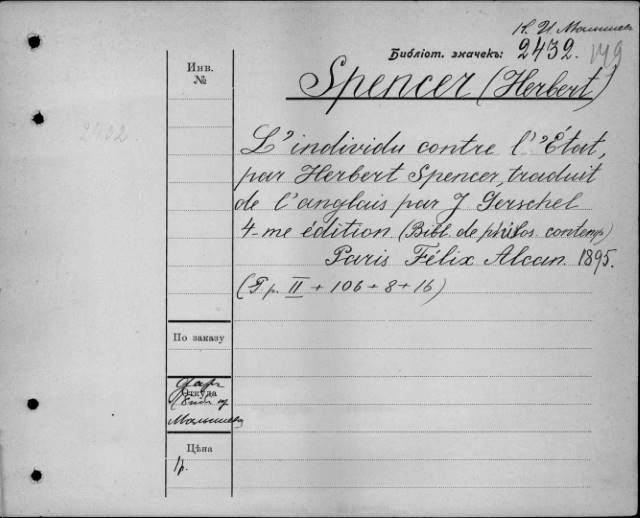 К. И. Малышев
Библіот. значекъ: 2432. 149
Инв.
№
Spencer (Herbert)
2432
L'individu contre l'État,
par Herbert Spencer, traduit
de l'anglais par J Gerschel
4-me édition (Bibl. de philos. contemp)
Paris Félix Alcan 1895.
(T p. II + 106 + 8 + 16)
По заказу
Откуда
Даръ
Малышева
Цѣна
1р.